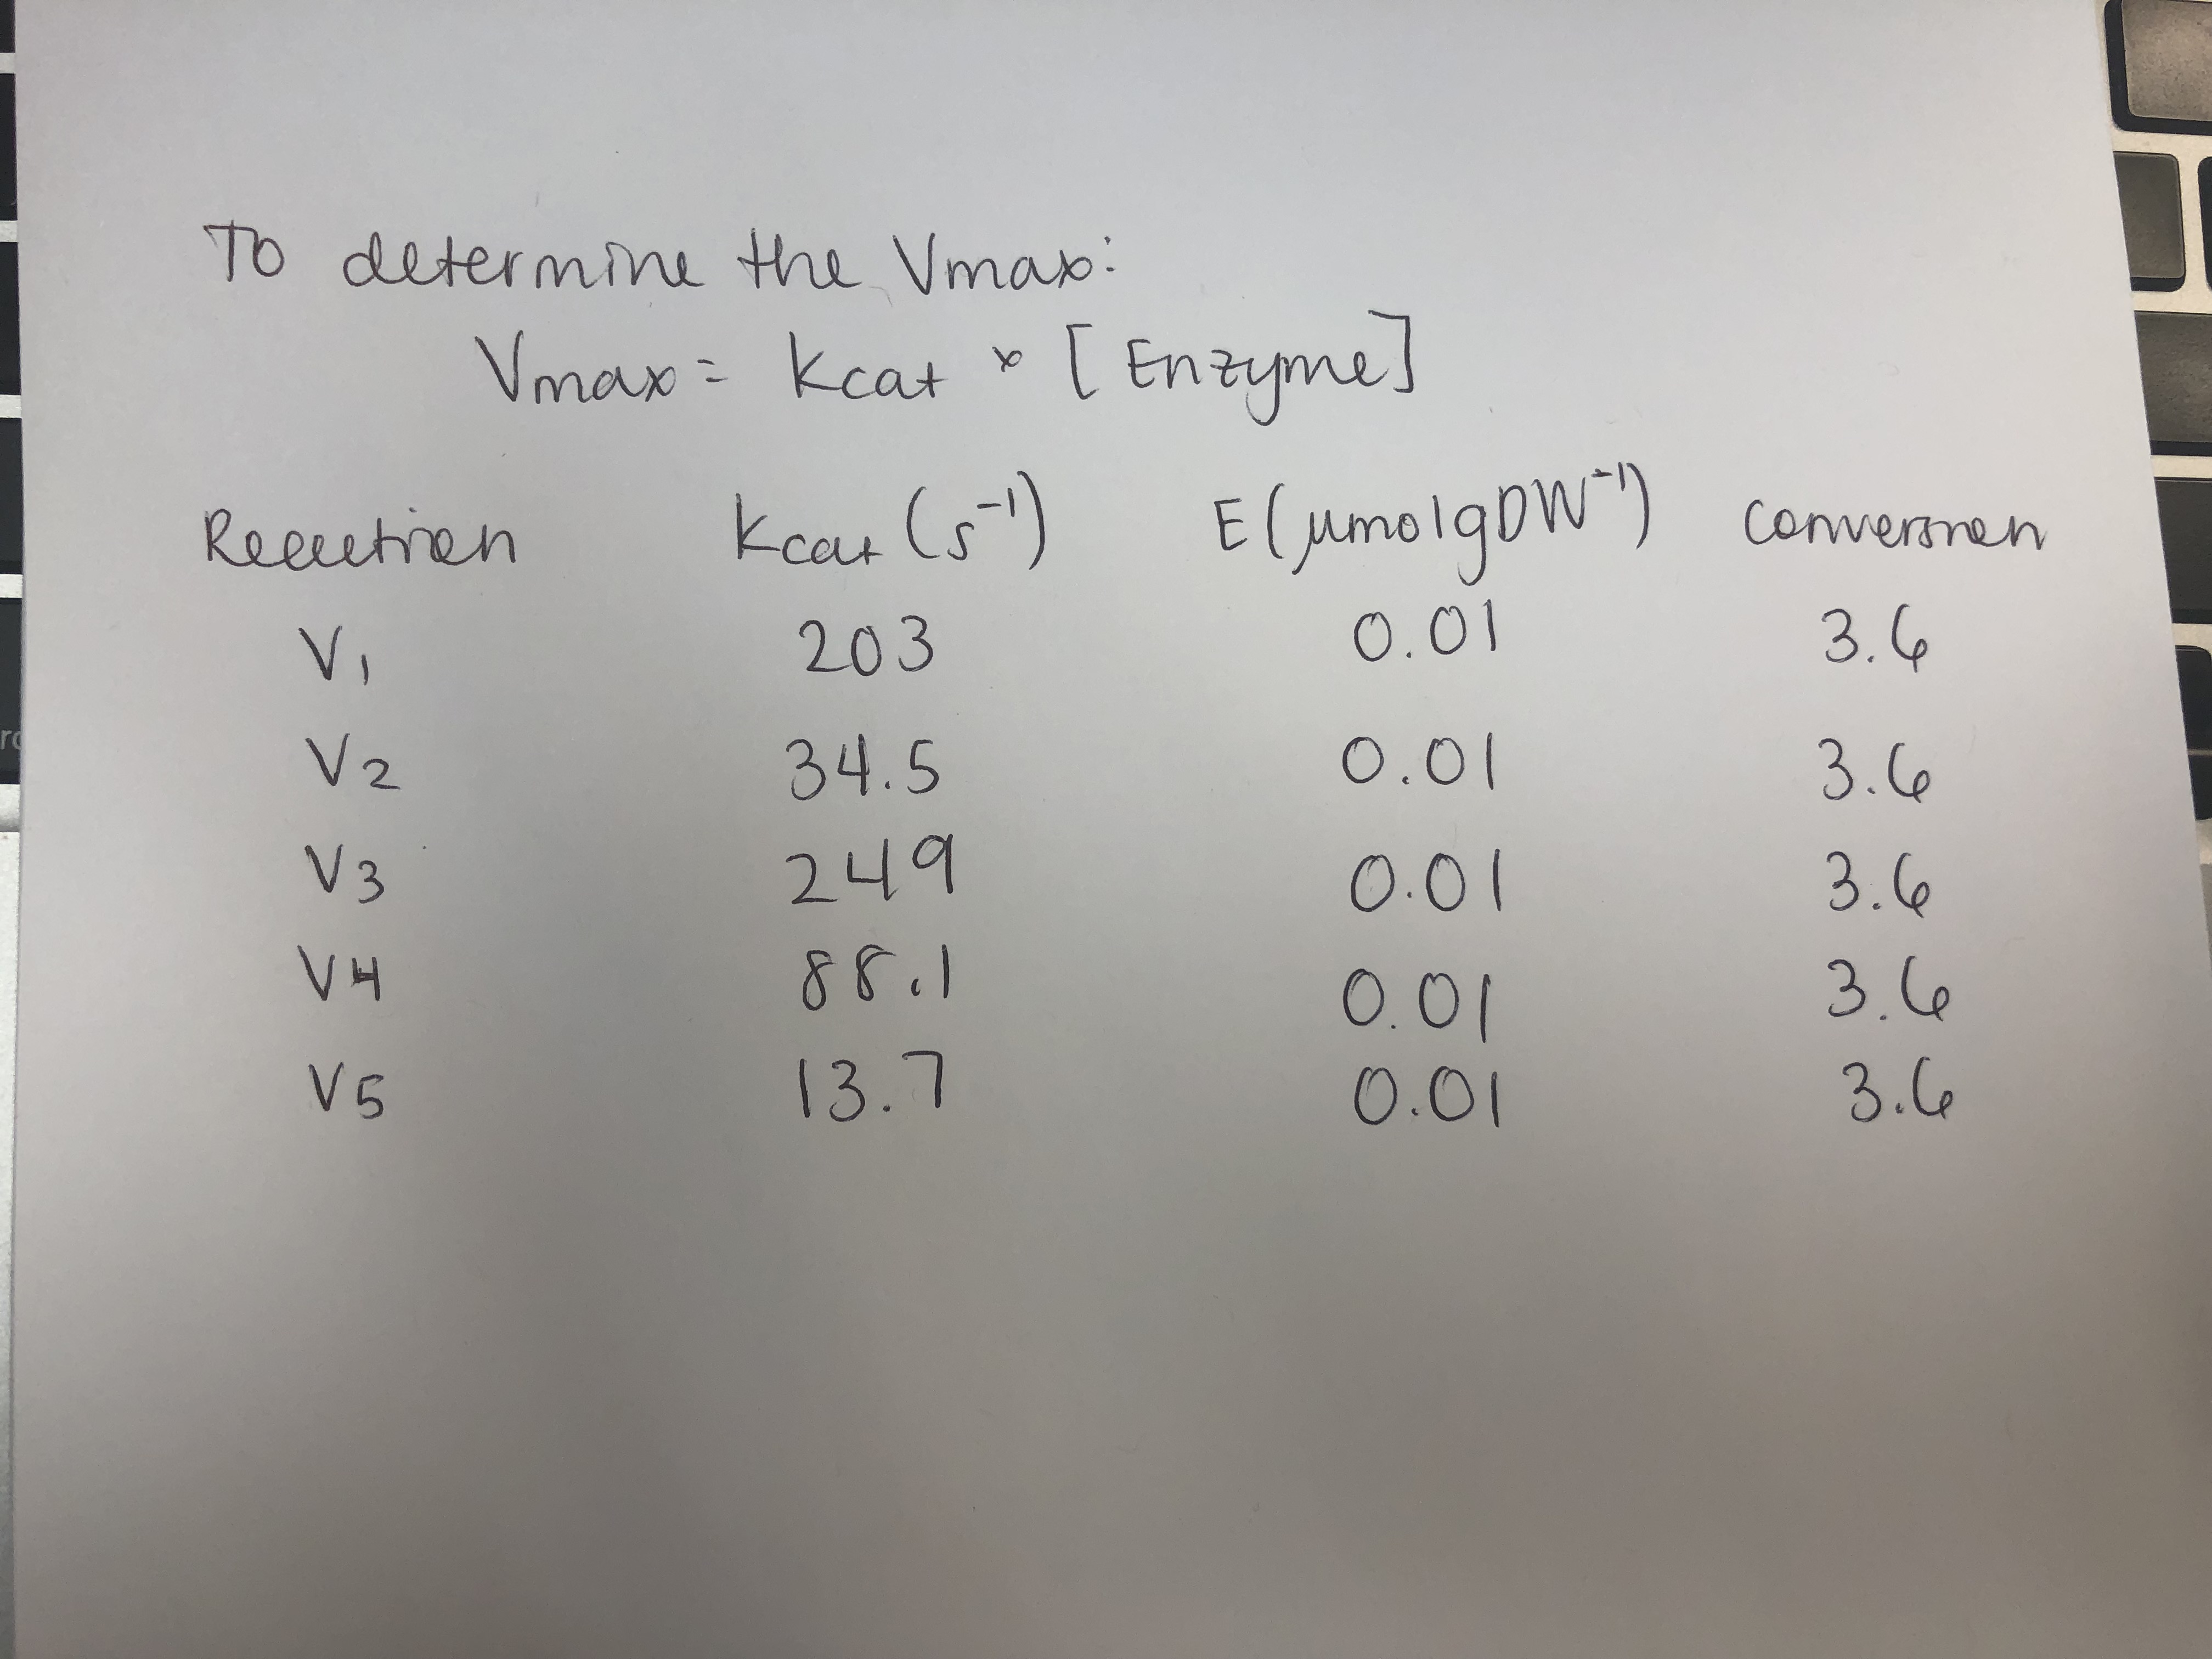 To determine the Vmax:
Vmax = Kcat x [Enzyme]
Reaction Kcat (s⁻¹) E(μmolgDW⁻¹) conversion
V1 203 0.01 3.6
V2 34.5 0.01 3.6
V3 249 0.01 3.6
V4 88.1 0.01 3.6
V5 13.7 0.01 3.6